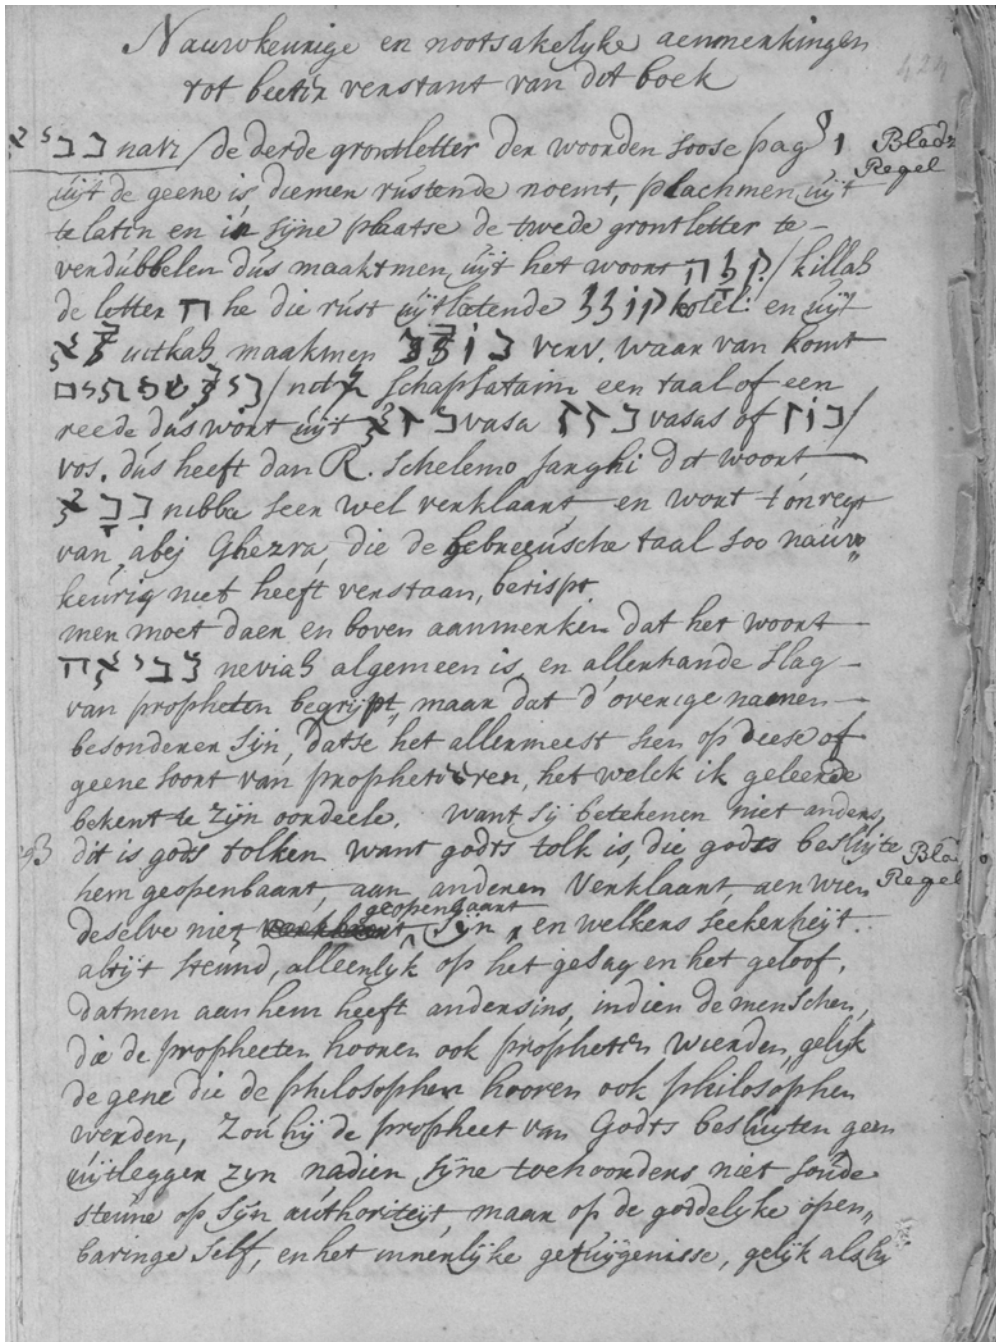 Nauwkeurige en nootsakelyke aenmerkingen
tot beeter verstant van dit boek
424
נביא navi / de derde grontletter der woorden soose pag 1
Blad
Regel
uÿt de geene is diemen rustende noemt, plachmen uÿt
te laten en in sÿne plaatse de twede grontletter te
verdubbelen dus maaktmen uÿt het woort קלה / killah
de letter ה he die rust uÿtlatende קולל kolel: en uÿt
maakmen verv. waar van komt
schapsataim een taal of een
reede dus wort uÿt בזא vasa בזז vasas of בוז /
vos. dus heeft dan R. Schelemo Jarghi dit woort
נבא nibba seer wel verklaart en wort t'onregt
van abej Ghezra, die de hebreeusche taal soo nauw„
keurig niet heeft verstaan, berispt.
men moet daer en boven aanmerken dat het woort
נביאה neviah algemeen is en allerhande slag
van propheten begrijpt, maar dat d'overige namen
besonderer sÿn, datse het allermeest sien op deese of
geene soort van propheteren, het welck ik geleerde
bekent te zÿn oordeele. want sÿ betekenen niet anders,
dit is gods tolken want godts tolk is, die godts besluÿte
Blad
Regel
hem geopenbaart, aan anderen Verklaart, aen wien
geopenbaart
deselve niet sÿn, en welkers seekerheÿt
altÿt steund, alleenlÿk op het gesag en het geloof,
datmen aan hem heeft andersins, indien de menschen,
die de propheeten hooren ook propheten wierden, gelyk
de gene die de philosophen hooren ook philosophen
werden, zou hÿ de propheet van Godts besluyten geen
uÿtlegger zyn nadien sÿne toehoorders niet soude
steune op sÿn authoriteÿt, maar op de goddelyke open„
baringe self, en het innerlÿke getuÿgenisse, gelÿk als hy